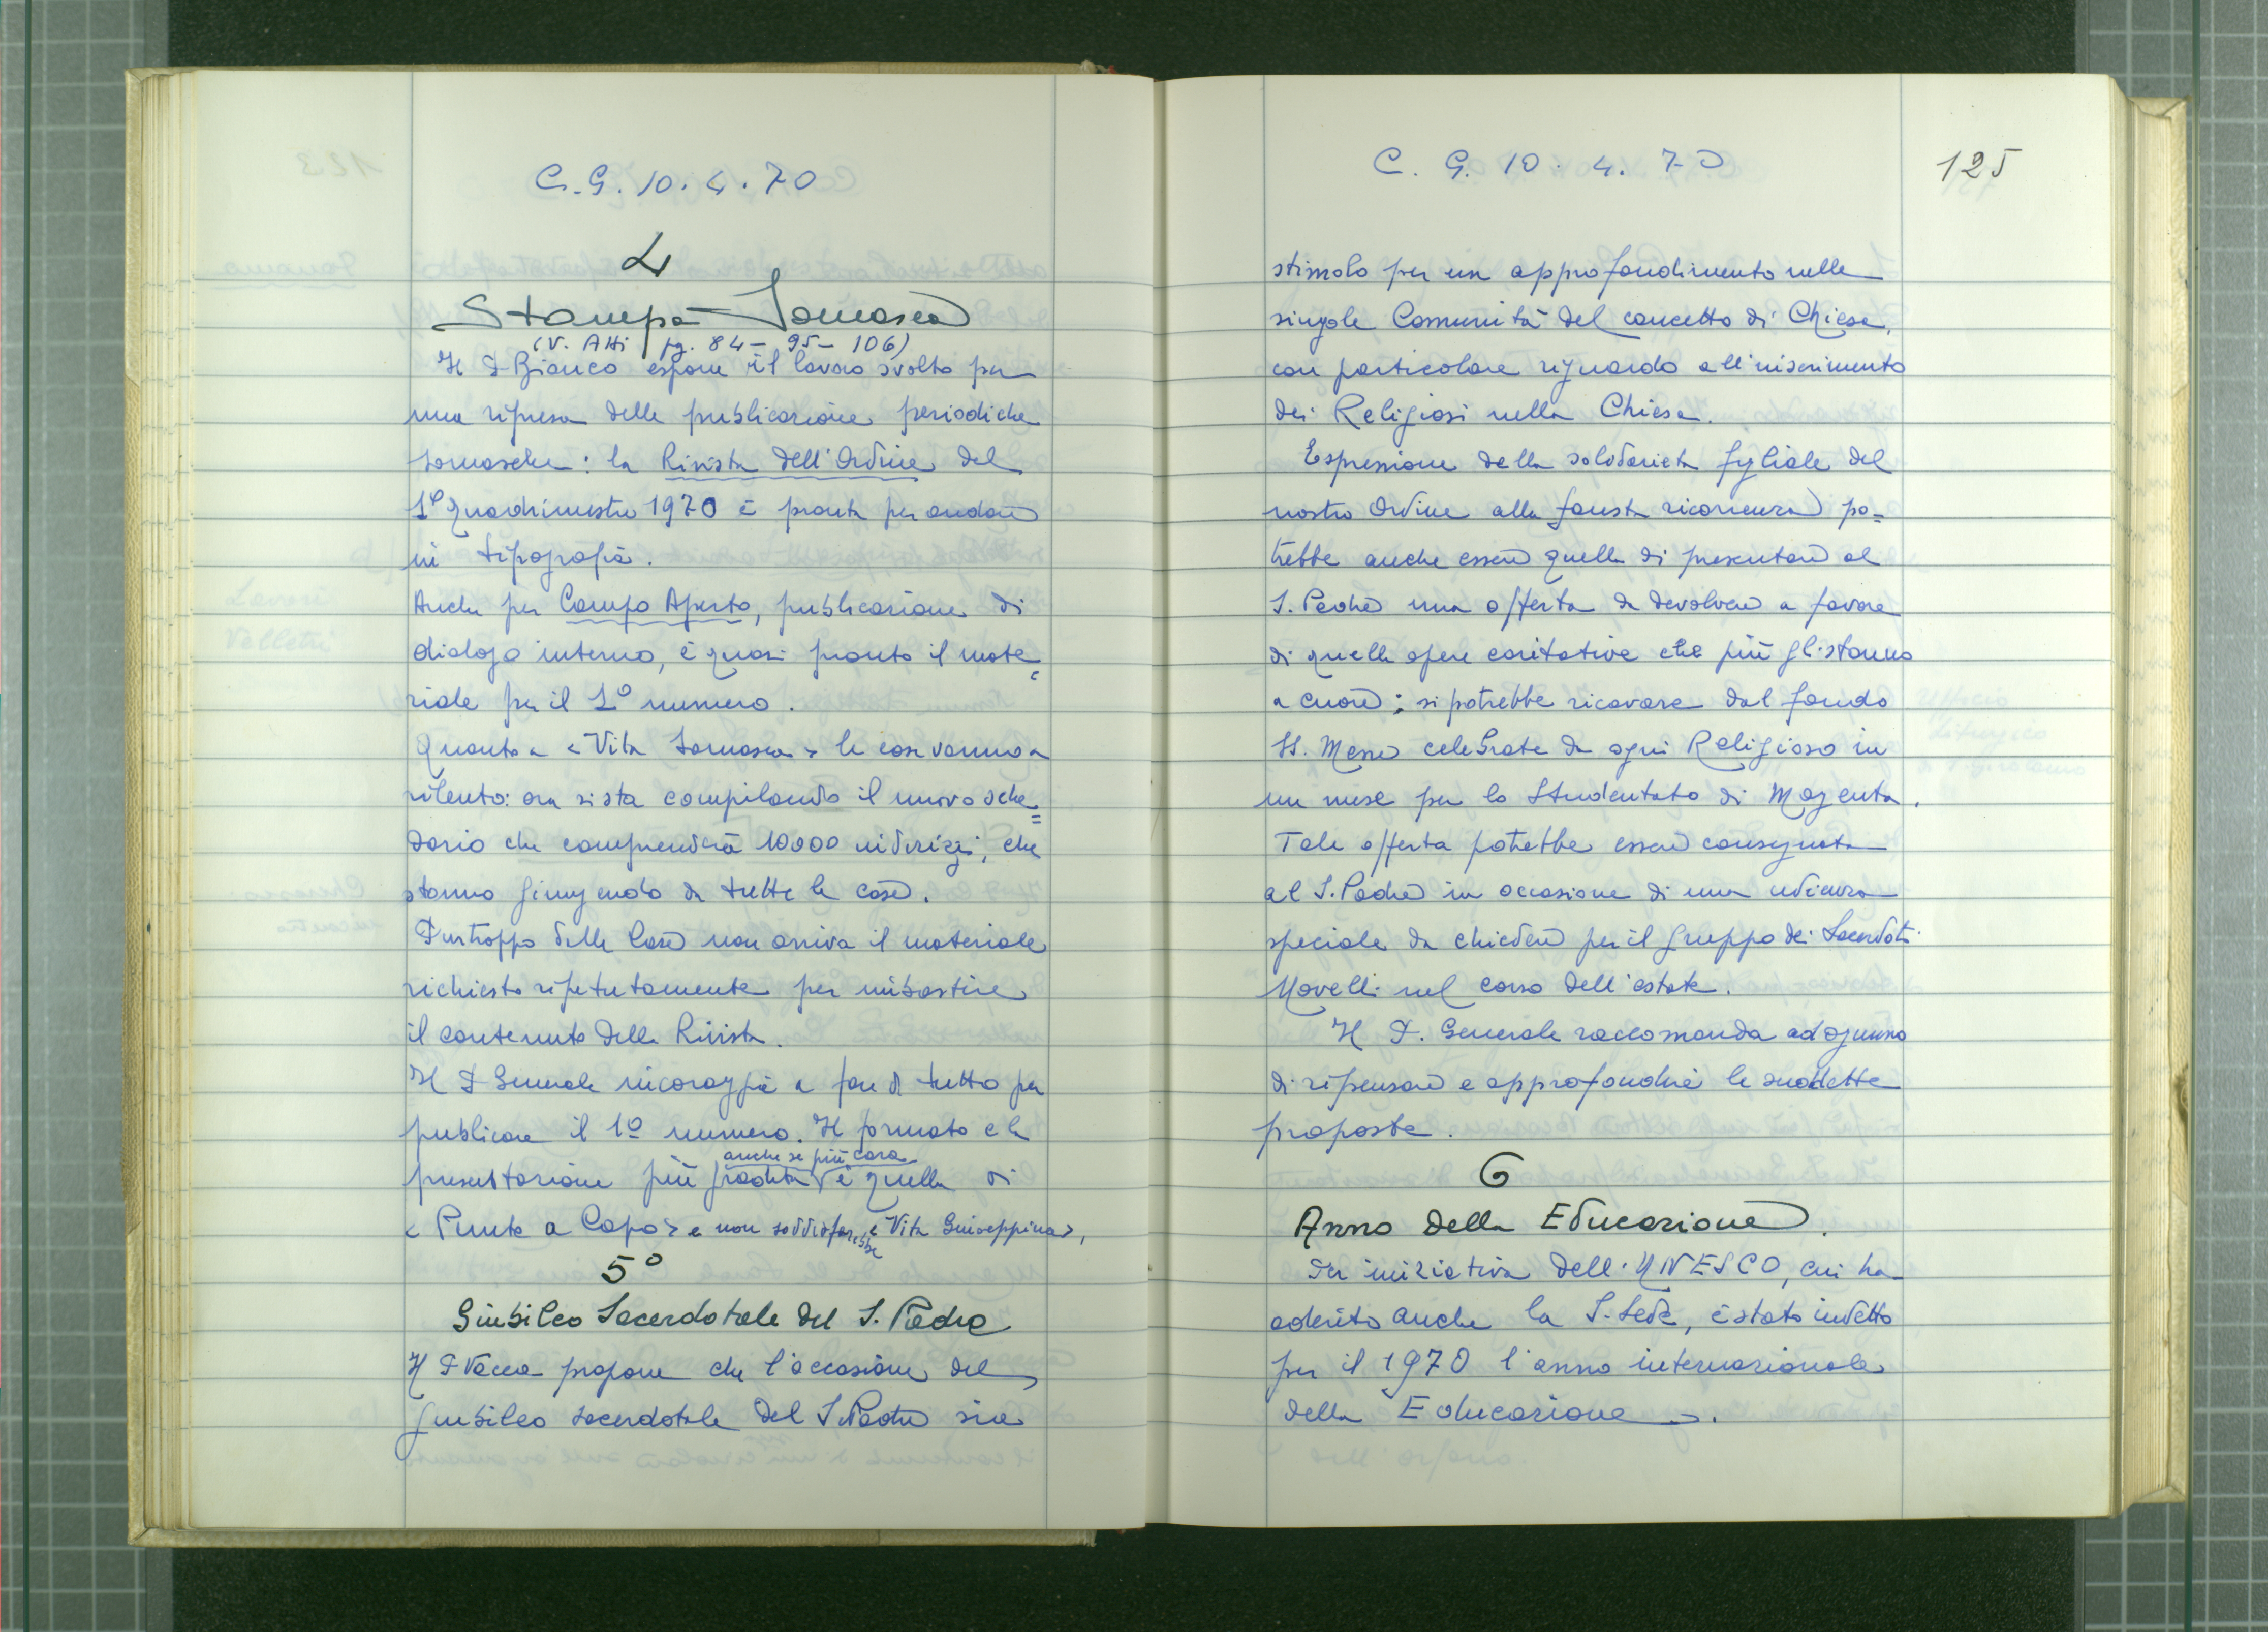 C.G. 10.4.70
4
Stampa Somasca
(V. Atti pg. 84 - 95 - 106)
Il P Bianco espone il lavoro svolto per
una ripresa delle publicazione periodiche
somasche: la Rivista dell'Ordine del
1º Quadrimestre 1970 è pronta per andare
in tipografia.
Anche per Campo Aperto, publicazione di
dialogo interno, è quasi pronto il mate=
riale per il 1º numero.
Quanto a "Vita Somasca" le cose vanno a
rilento: ora si sta compilando il nuovo sche=
dario che comprenderà 10000 indirizzi, che
stanno giungendo da tutte le case.
Purtroppo dalle Case non arriva il materiale
richiesto ripetutamente per imbastire
il contenuto della Rivista.
Il P Generale incoraggia a fare di tutto per
publicare il 1º numero. Il formato e la
anche se più cara
presentazione più gradita è quella di
"Punto a Capo" e non soddisfarebbe "Vita Giuseppina",
5º
Giubileo Sacerdotale del S. Padre
Il P Vacca propone che l'occasione del
giubileo sacerdotale del S. Padre sia
C. G. 10. 4. 70
125
stimolo per un approfondimento nelle
singole Comunità del concetto di Chiesa,
con particolare riguardo all'inserimento
dei Religiosi nella Chiesa.
Espressione della solidarietà figliale del
nostro Ordine alla fausta ricorrenza po=
trebbe anche essere quella di presentare al
S. Padre una offerta da devolvere a favore
di quelle opere caritative che più gli stanno
a cuore; si potrebbe ricavare dal fondo
SS. Messe celebrate da ogni Religioso in
un mese per lo Studentato di Magenta.
Tale offerta potrebbe essere consegnata
al S. Padre in occasione di una udienza
speciale da chiedere per il gruppo dei Sacerdoti
Novelli nel corso dell'estate.
Il P. Generale raccomanda ad ognuno
di ripensare e approfondire le suddette
proposte.
6
Anno della Educazione.
Per iniziativa dell'UNESCO, cui ha
aderito anche la S. Sede, è stato indetto
per il 1970 l'anno internazionale
della Educazione.